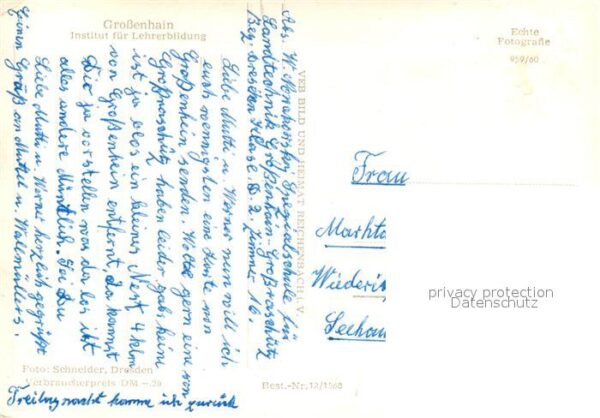 Großenhain
Institut für Lehrerbildung
Echte
Fotografie
959/60
Abs. W. Spezialschule für
Landtechnik Großenhain-Großraschütz
Bez. Dresden Klasse D.2. Zimmer 16.
Liebe Mutti u. Werner nun will ich
Euch wenigsten eine Karte von
Großenhein senden. Wollte gern eine von
Großraschütz haben leider gabs keine
ist ja blos ein kleines Nest 4 klm
von Großenhein entfernt. Da kannst
Dir ja vorstellen was da los ist
alles andere Mündlich. Sei Du
Liebe Mutti u. Werner herzlich gegrüßt
Einen Gruß an Muttel u. Wallmüllers.
Freitag nacht komme ich zurück
VEB BILD UND HEIMAT REICHENBACH i. V.
Frau
Markt
Wiederi
Seehau
privacy protection
Datenschutz
Foto: Schneider, Dresden
Verbraucherpreis DM -.20
Best.-Nr. 12/1560